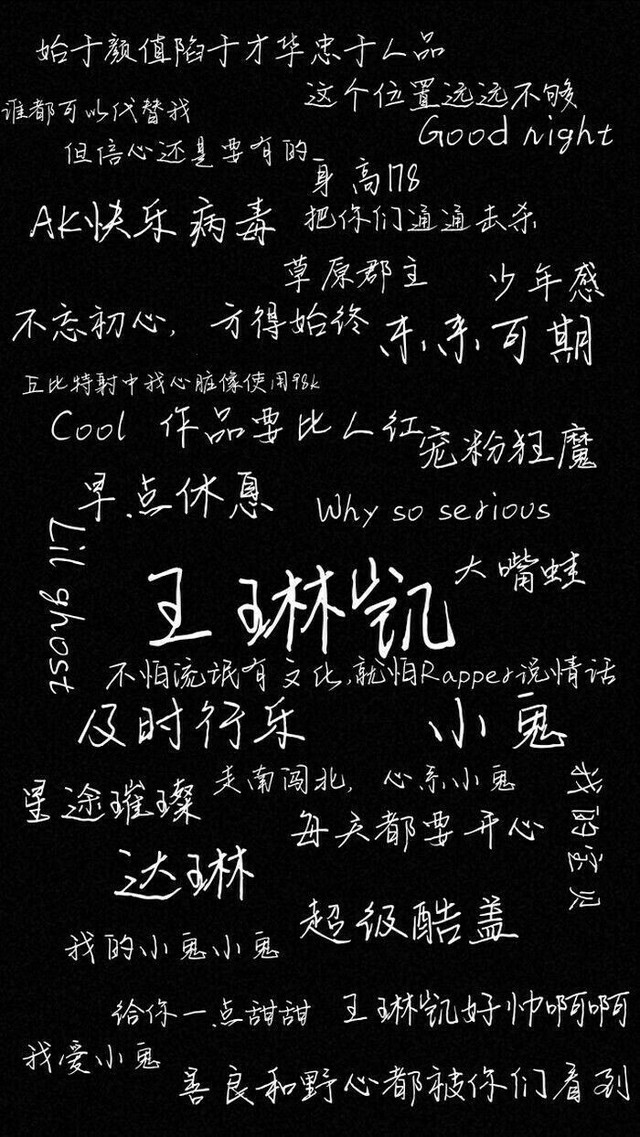 始于颜值陷于才华忠于人品
这个位置远远不够
谁都可以代替我
Good night
但信心还是要有的
身高178
AK快乐病毒 把你们通通击杀
草原郡主 少年感
不忘初心，方得始终 未来可期
丘比特射中我心脏像使用98k
Cool 作品要比人红 宠粉狂魔
早点休息 Why so serious
Lil ghost
大嘴蛙
王琳凯
不怕流氓有文化,就怕Rapper说情话
及时行乐 小鬼
走南闯北，心系小鬼
星途璀璨
我的宝贝
每天都要开心
达琳
超级酷盖
我的小鬼小鬼
给你一点甜甜 王琳凯好帅啊啊
我爱小鬼
善良和野心都被你们看到